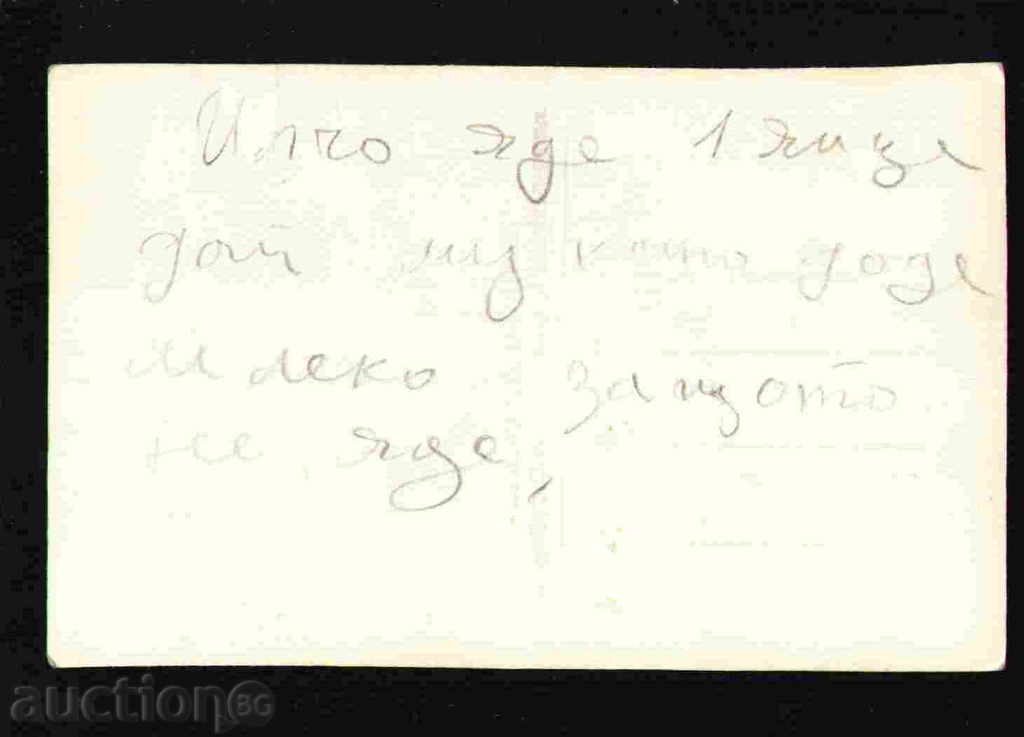 Илчо яде 1 яйце
дай му като доде
млеко защото
не яде,
auction BG